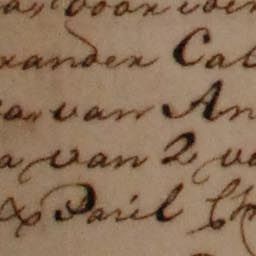 voor
xander Cal
van An
a van 2 va
& Paúl Ch